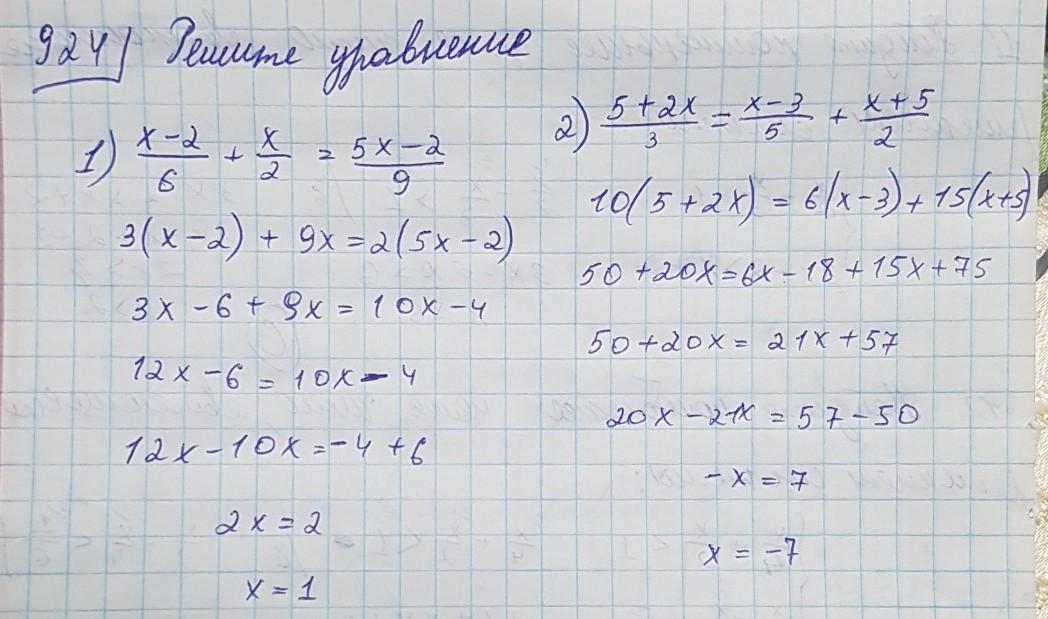 924) Решите уравнение
1) (x-2)/6 + x/2 = (5x-2)/9
3(x-2) + 9x = 2(5x-2)
3x - 6 + 9x = 10x - 4
12x - 6 = 10x - 4
12x - 10x = -4 + 6
2x = 2
x = 1
2) (5+2x)/3 = (x-3)/5 + (x+5)/2
10(5+2x) = 6(x-3) + 15(x+5)
50 + 20x = 6x - 18 + 15x + 75
50 + 20x = 21x + 57
20x - 21x = 57 - 50
-x = 7
x = -7